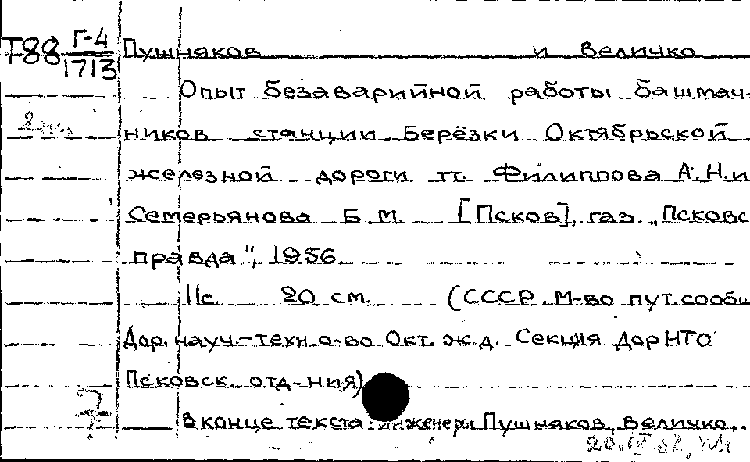 Т88 Г-4/1713 Пушняков и Величко
Опыт безаварийной работы башмач-
ников станции Берёзки Октябрьской
железной дороги тт. Филиппова А.Н. и
Семерьянова Б.М. [Псков], газ. „Псковс
правда", 1956
11с. 20 см. (СССР. М-во пут. сообщ
Дор. науч.-техн. о-во Окт. ж.д. Секция ДорНТО
Псковск. отд-ния)
В конце текста: инженеры Пушняков, Величко.